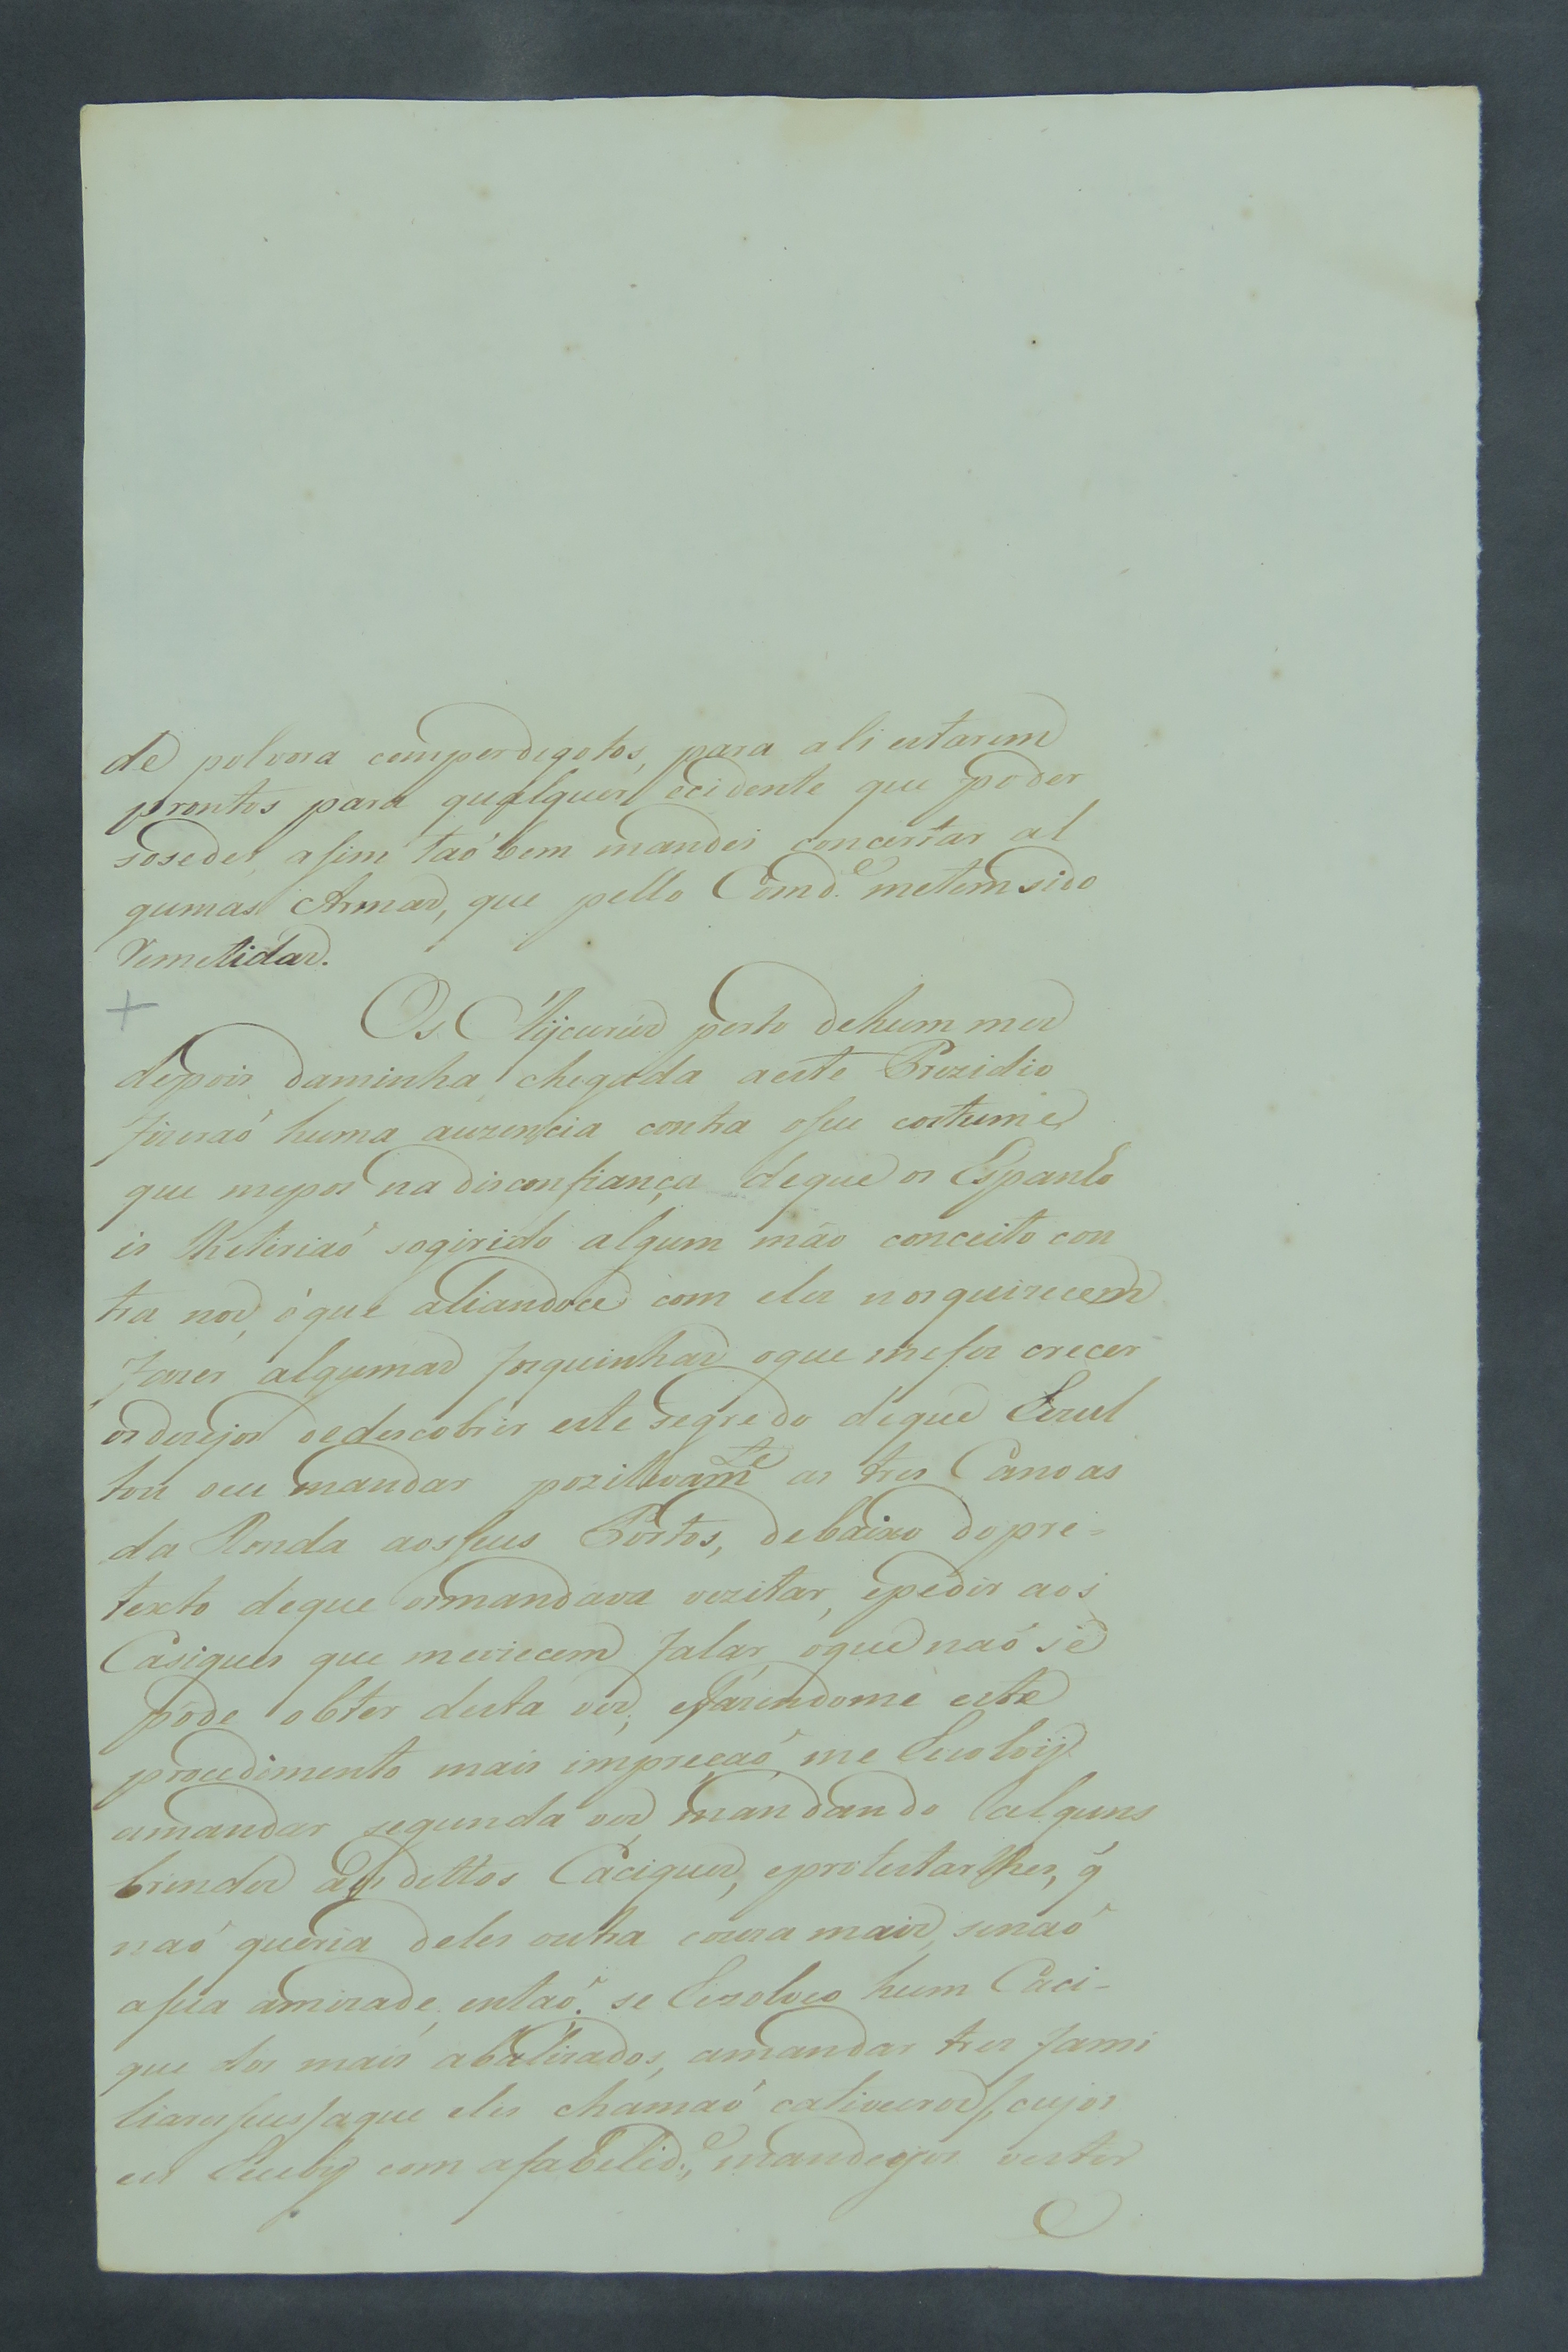 de polvora comperdigotos, para ali estarem
prontos para qualquer ocidente que poder
soseder, asim taõbem mandei concertar al
gumas Armas, que pello Comd.e metemsido
Remetidas.
+
Os perto dehum mes
depois daminha chegada aeste Prezidio
fizeraõ huma auzencia contra oseu costume,
que mepos na disconfiança deque os Espanho
is lheteriaõ sogirido algum máo conceito con
tra nos, óque aliandoce com eles nosquizecem
fazer algumas o que mefes crecer
osdezejos dedescobrir este segredo deque Rezul
tou oeu mandar pozitivamte as tres Canoas
da Ronda aosseus Portos, debaixo dopre=
texto deque osmandava vezitar, epedir aos
Casiques que meviecem falar oque naõ se
póde obter desta ves, efazendome este
procedimento mais impreçaõ, me Rezolvij
amandar segunda ves, mandando alguns
brindes aos dittos Caciques, eprotestarlhes, q̃
naõ queria deles outra couza mais, senaõ
asua amizade, entaõ se Rezolveo hum Caci-
que dos mais abalizados, amandar tres fami
liares seus aque eles chamaõ cativeiros, cujos
eu Reseby com afabelid.e, mandeyos vestir